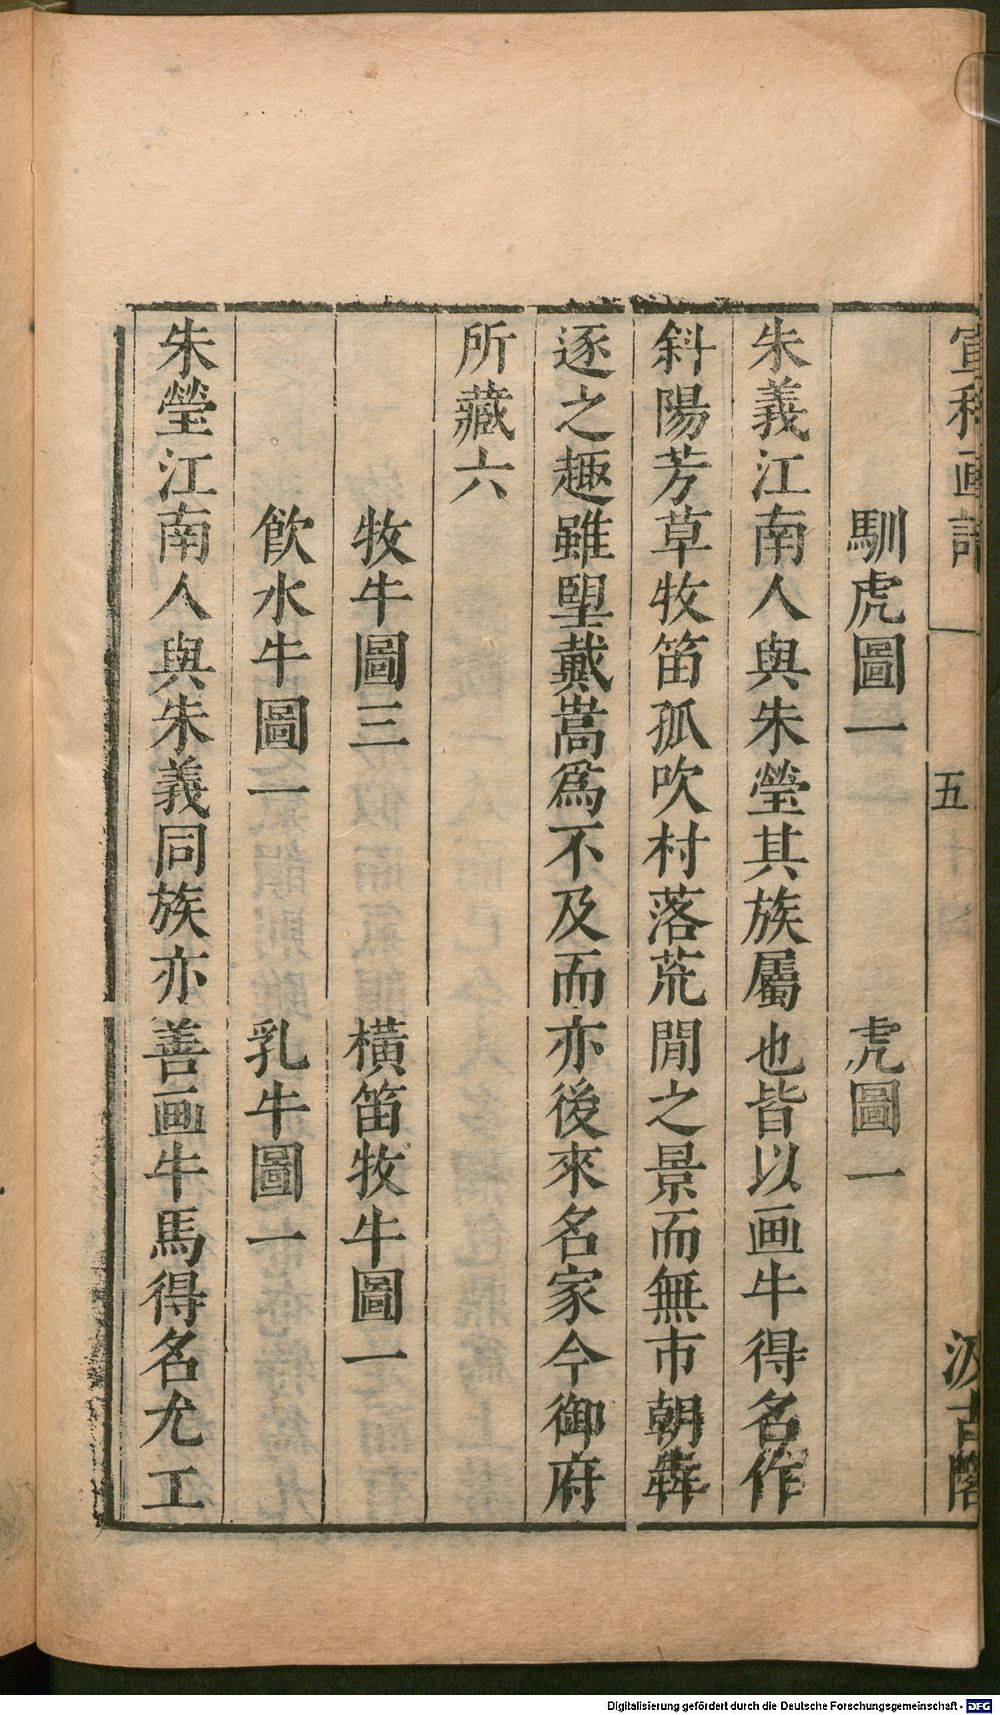 宣和画譜 五 汲古閣
馴虎圖一 虎圖一
朱義江南人與朱瑩其族屬也皆以画牛得名作
斜陽芳草牧笛孤吹村落荒閒之景而無市朝犇
逐之趣雖朢戴嵩爲不及而亦後來名家今御府
所藏六
牧牛圖三 橫笛牧牛圖一
飮水牛圖一 乳牛圖一
朱瑩江南人與朱義同族亦善画牛馬得名尤工
Digitalisierung gefördert durch die Deutsche Forschungsgemeinschaft - DFG